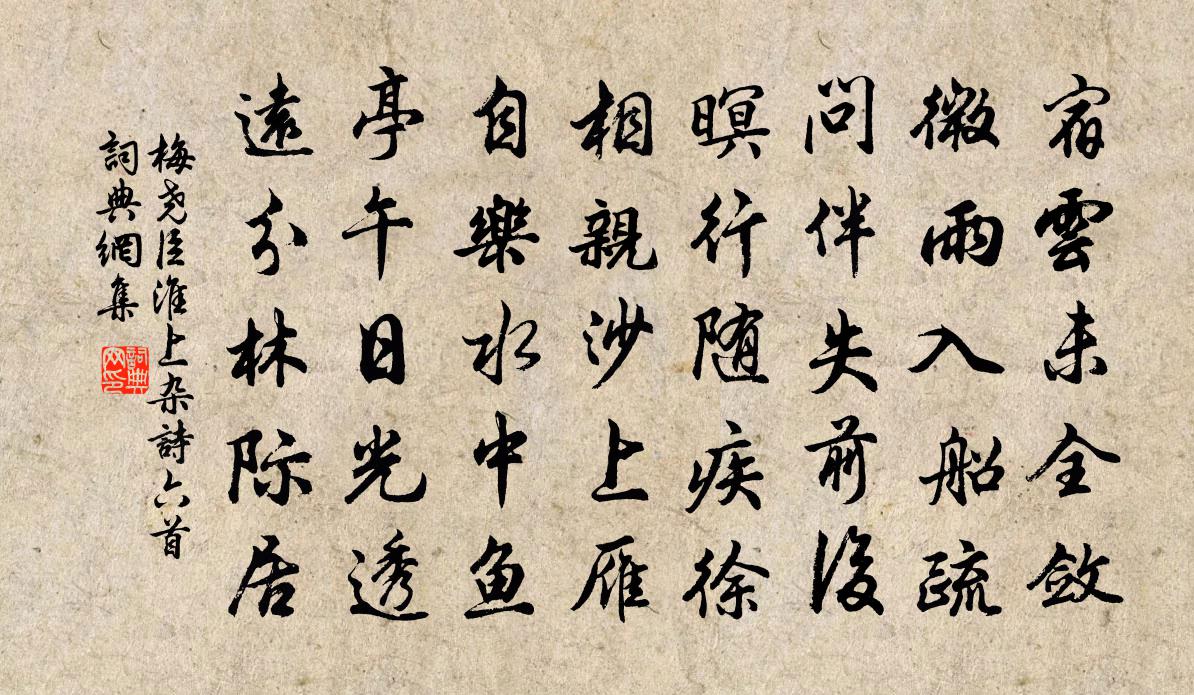 宿雲未全斂
微雨入船疏
問伴失前後
暝行随疾徐
相親沙上雁
自樂水中鱼
亭午日光透
遠分林际居
梅尧臣淮上杂詩六首
詞典網集
詞典
网印